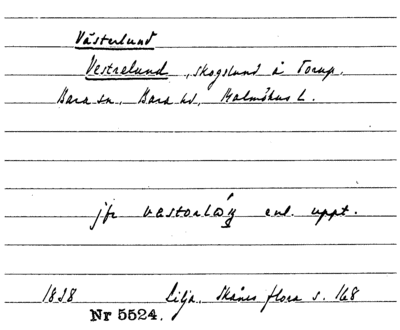 Västerlund
Vestrelund, skogslund å Torup.
Bara sn, Bara hd, Malmöhus L.
jfr enl. uppt.
1838 Lilja, Skånes flora s. 168
Nr 5524.